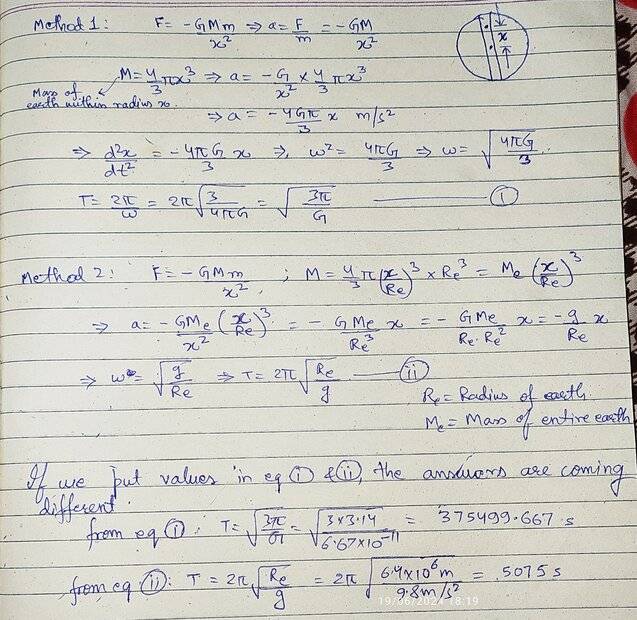 Method 1: F = -GMm/x² ⇒ a = F/m = -GM/x²
x
M = 4/3 πx³ ⇒ a = -G/x² × 4/3 πx³
Mass of earth within radius x.
⇒ a = -4Gπ/3 x m/s²
⇒ d²x/dt² = -4πG/3 x ⇒, ω² = 4πG/3 ⇒ ω = √(4πG/3)
T = 2π/ω = 2π√(3/4πG) = √(3π/G) — (i)
Method 2: F = -GMm/x², ; M = 4/3 π(x/Re)³ × Re³ = Me (x/Re)³
⇒ a = -GMe/x² (x/Re)³ = - GMe/Re³ x = - GMe/Re·Re² x = -g/Re x
⇒ ω = √(g/Re) ⇒ T = 2π√(Re/g) — (ii)
Re = Radius of earth.
Me = Mass of entire earth
If we put values in eq (i) & (ii), the answers are coming
different.
from eq (i): T = √(3π/G) = √(3×3.14/6.67×10⁻¹¹) = 375499.667 s
from eq (ii): T = 2π√(Re/g) = 2π√(6.4×10⁶m/9.8m/s²) = 5075 s
19/06/2024 18:19